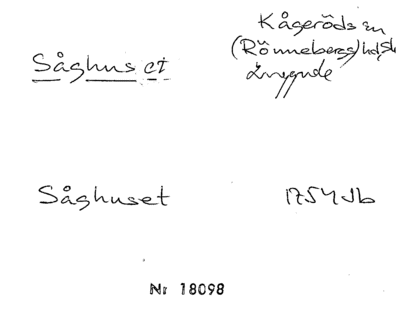 Kågeröds sn
Såghuset (Rönnebergs) hd, Sk
Såghuset 1754 Jb
Nr 18098